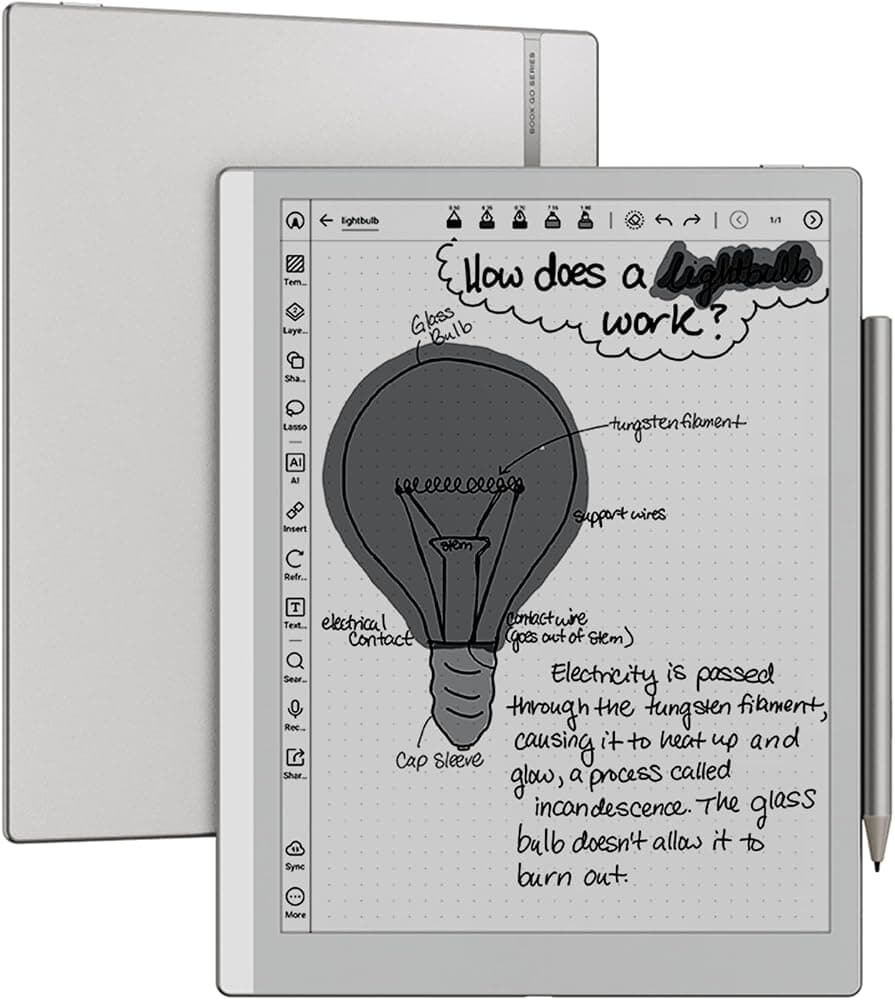 BOOX GO SERIES
lightbulb
1/1
How does a lightbulb
work?
Tem...
Laye...
Sha...
Lasso
AI
AI
Insert
Refr...
T
Text...
Sear...
Rec...
Shar...
Sync
More
Glass
Bulb
tungsten filament
support wires
stem
electrical
contact
contact wire
(goes out of stem)
Cap sleeve
Electricity is passed
through the tungsten filament,
causing it to heat up and
glow, a process called
incandescence. The glass
bulb doesn't allow it to
burn out.